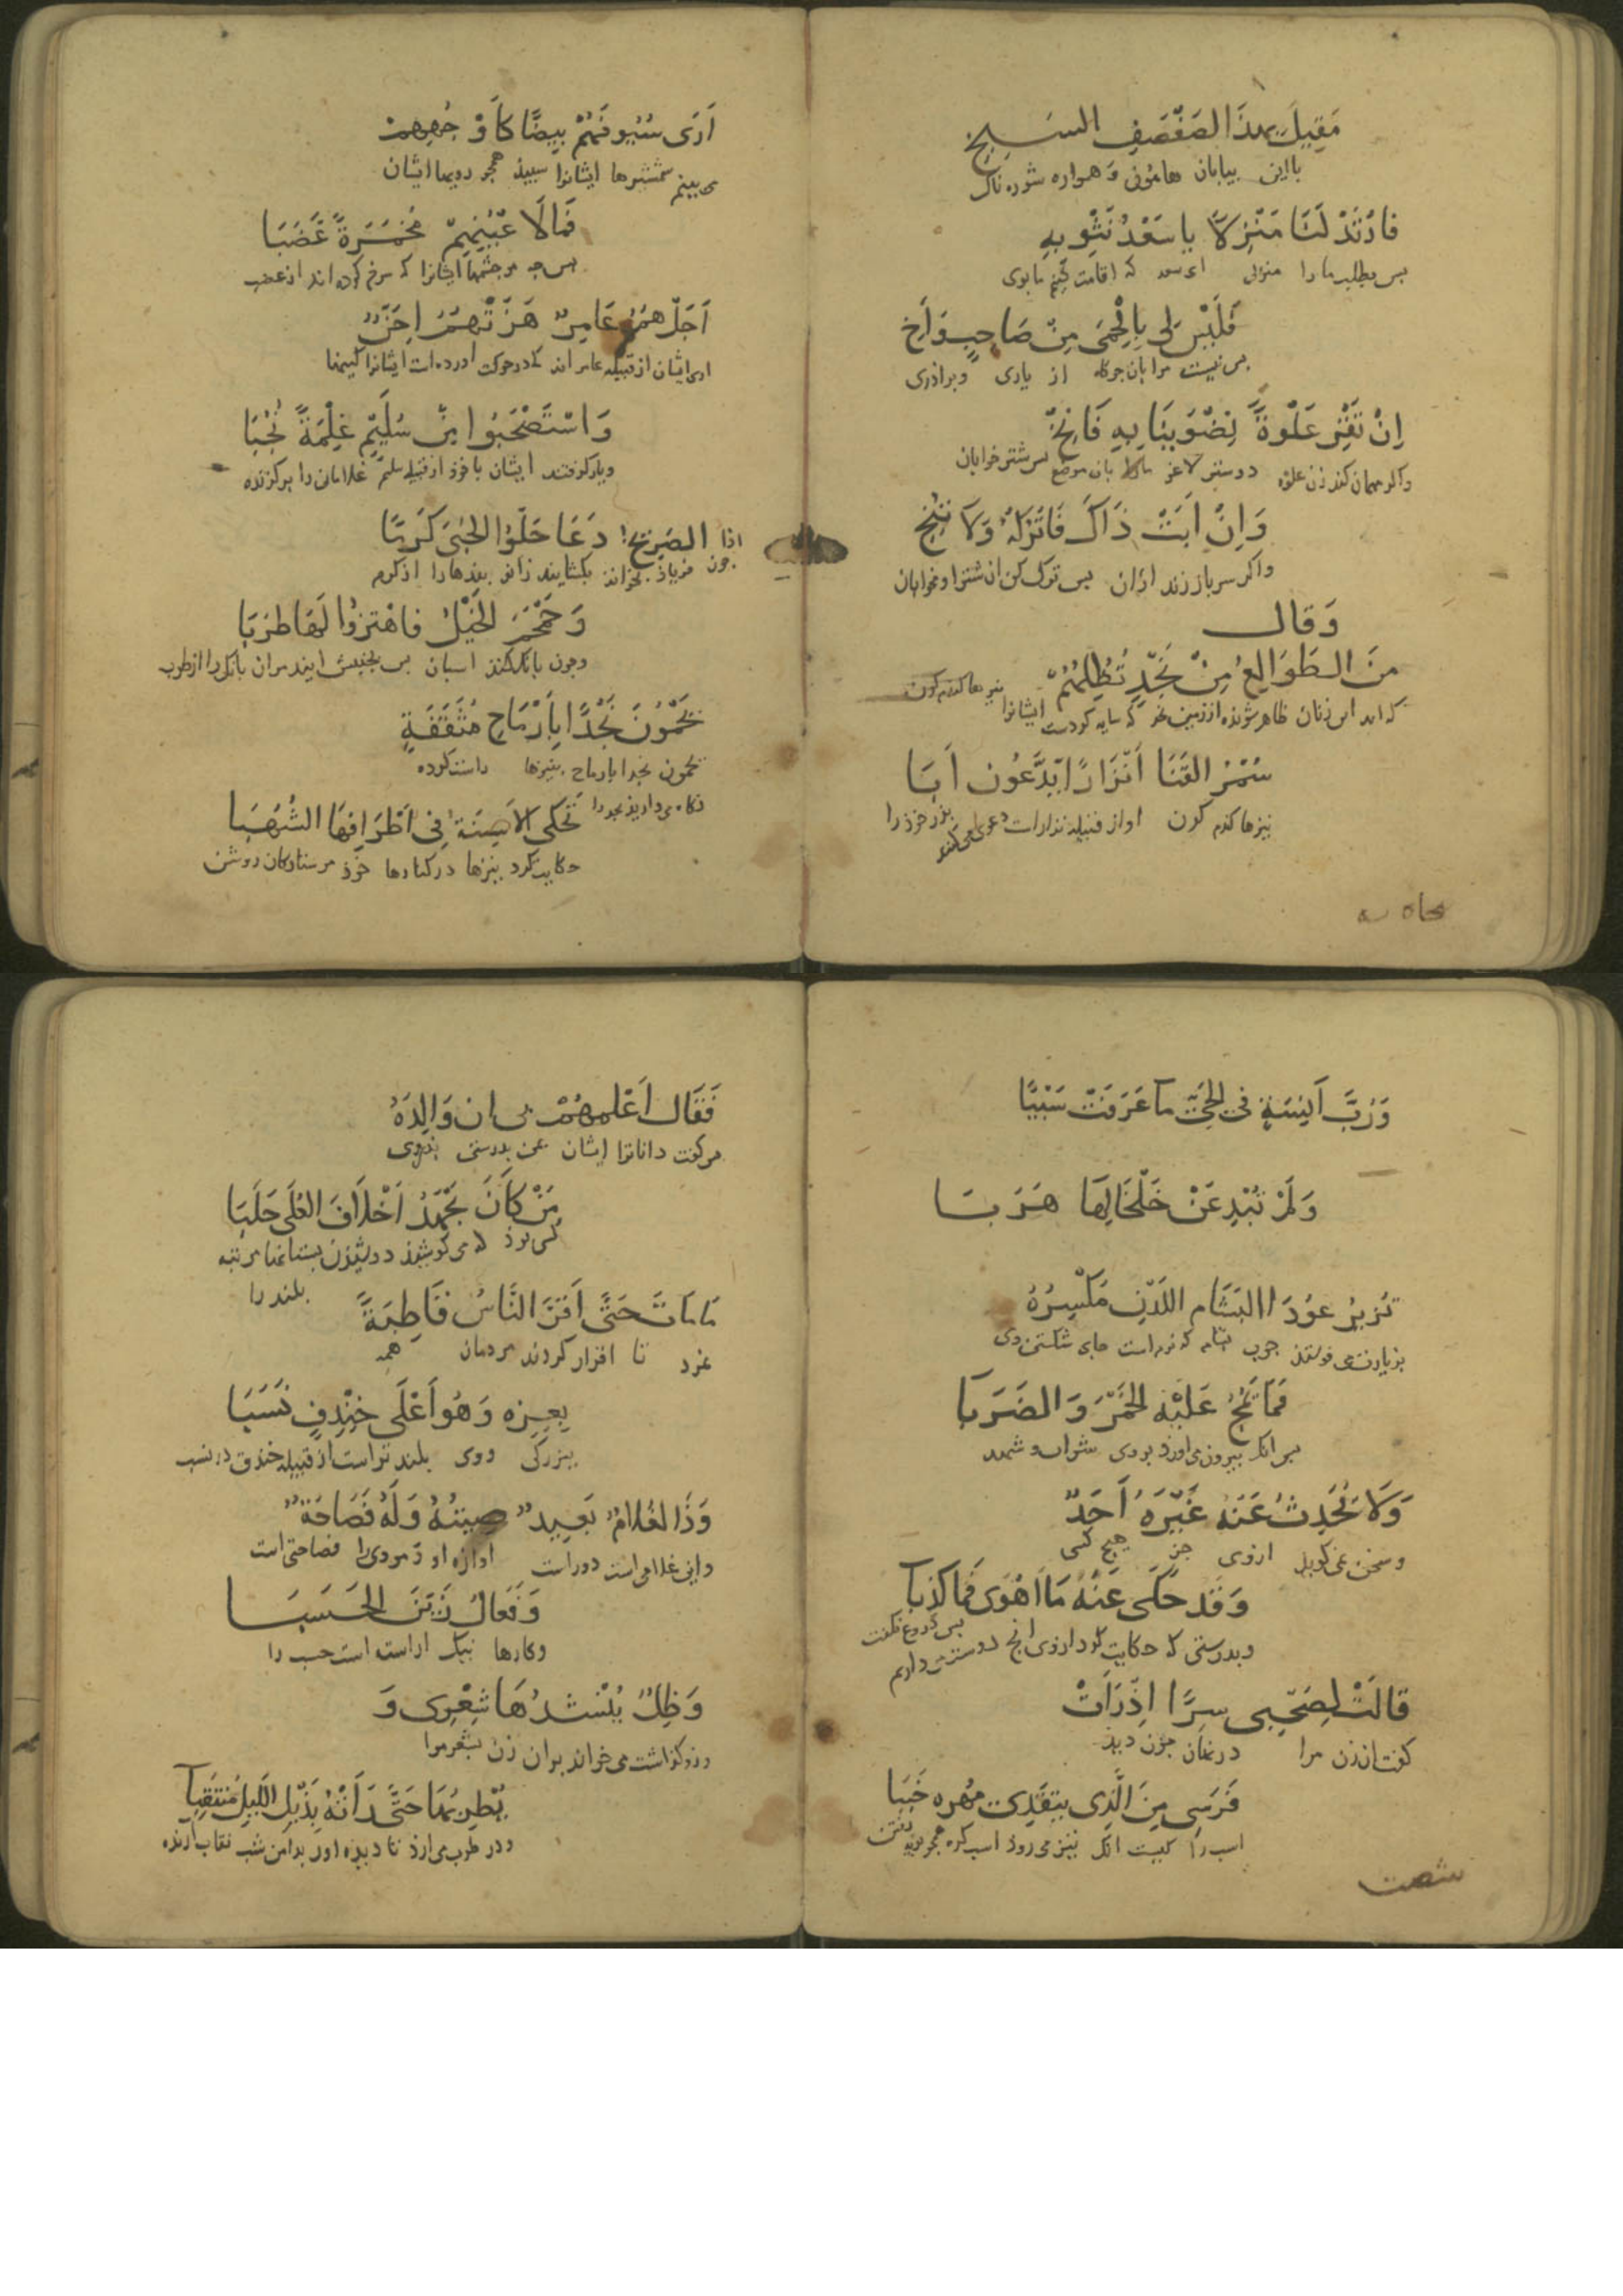 مَقِيلَ بهذَا الصَفْصَفِ السَبِخِ
بااین بیابان هامونی وهمواره شوره ناک
فَارْتَدْ لَنَا مَنْزِلاً یا سَعْدُ نَثْوِ بِهِ
بس بطلب مارا منزلی ای سعد که اقامت کنیم بدوی
فَلَيْسَ لِى بِالْحِمَى مِنْ صَاحِبٍ وَأَخِ
بس نیست مرا بان جرکاه از یاری وبراذری
اِنْ تَقْرِ عَلْوَةُ نِضْوَيْنَا بِهِ فَانِخْ
واکر مهمان کند زن علوه دو شتر لاغر مارا بان موضع بس شتر خوابان
وَاِنْ اَبَتْ ذَاكَ فَاتْرُكْهُ وَلَا تُنِخِ
واکر سرباز زند ازان بس ترک کن ان شتر را ومخوابان
وَقال
مَنَ الطَوَالِعُ مِنْ نَجْدٍ تُظِلُّهُمُ
که اند این زنان ظاهر شونده از زمین نجد که سایه کردست ایشانرا نیزهاء کندم کون
سُمْرُ القَنَا أَنِزَارًا يَدَّعُونَ اَبَا
نیزها کندم کون او از قبیله نزارات دعوی می کنند بذر خوذ را
اَرَى سُيُوفَهُمْ بِيضًا كَاَوْجُهِهِمْ
می بینم شمشیرها ایشانرا سبیذ همجو رویها ایشان
فَمَا لَاَعْيُنِهِمْ مُحْمَرَةً غَضَبَا
بس جه مر جشمها ایشانرا که سرخ کرده اند از غضب
اَجَلْ هُمُ عَامِرٌ هَزَّتْهُمُ اِحَنٌ
اری ایشان از قبیله عامر اند که درحرکت اورده است ایشانرا کینها
وَاسْتَصْحَبُوا مِنْ سُلَيْمٍ غِلْمَةً نُجُبَا
ویار کرفتند ایشان باخوذ از قبیله سلیم غلامانی را برکزیده
اذا الصَرِيخُ دَعَا حَلُّوا الحُبَى كَرَمًا
جون فریاذ بخواند بکشایند زانو بندها را از کرم
وَحَمْحَمَ الخَيْلُ فَاهْتَزُّوا لَهَا طَرَبَا
وجون بانک کند اسبان بس بجنبش ایند مران بانک را از طرب
يَحْمُونَ نَجْدًا بِاَرْمَاحٍ مُثَقَّفَةٍ
یحمون نجدا بارماح بنیزها راست کرده
نکاه می دارند نجد را
تَحْكِى الاَسِنَةُ فِى اَطْرَافِهَا الشُهُبَا
حکایت کرد نیزها در کنارها خوذ مر ستارکان روشن
وَرُبَّ آنِسَةٍ فى الحَيِّ ما عَرَفَتْ سَبْيًا
وَلَمْ تُبْدِ عَنْ خَلْخَالِهَا هَرَبَا
تُزِيرُ عُودَ الْبَشَامِ اللَدْنِ مَكْسِرُهُ
بزیارت می فرستذ جوب بشام که نرم است جای شکستن وی
فَمَا تَمُجُّ عَلَيْهِ الخَمْرَ وَالضَرَبَا
بس انک بیرون می اورذ بروی شراب و شهد
وَلَا يُحَدِثُ عَنْهُ غَيْرَهُ أَحَدٌ
وسخن نمی کوید ازوی جز هیج کسی
وَقَد حَكَى عَنْهُ مَا اَهْوَى فَمَا كَذِبَا
وبدرستی که حکایت کرد ازوی انج دوست می دارم بس دروغ نکفت
قَالَتْ لِصَحْبِى سِرًّا اِذْ رَاَتْ
کفت ان زن مرا در نهان جون دید
فَرَسِى مِنَ الَّذِى يَتَقَدَّى مُهْرُهُ خَبَبَا
اسب را کیست انک نیز می روذ اسب کره
شصت
فَقَالَ اَعْلَمُهُمْ بِى ان وَالِدَهُ
مر کفت داناترا ایشان بمن بدرستی بذروی
مَنْ كَانَ يَجْهَدُ اَخْلَافَ العُلَى حَلَبَا
کسی بوذ که می کوشیذ در دوشیذن بستانها مرتبه بلند را
مَا مَاتَ حَتَّى اَقَرَّ النَّاسُ قَاطِبَةً
نمرد تا اقرار کردند مردمان همه
بِعِزِهِ وَهُوَ اَعْلَى خِنْدِفٍ نَسَبَا
ببزرکی ووی بلندتر است از قبیله خندف در نسب
وَذَا الغُلَامُ بَعِيدٌ صِيتُهُ وَلَهُ فَصَاحَةٌ
واین غلامی است دوراست اوازه او ومروی را فصاحتی است
وَفَعَالٌ زَيَّنَ الحَسَبَا
وکارها نیک اراسته است حسب را
وَظَلَّ يُنْشِدُهَا شِعْرِى وَ
وروز کذاشت می خواند بران زن شعر مرا
يُطْرِبُهَا حَتَّى رَاَتْهُ بِذَيْلِ اللَيْلِ مُنْتَقِبَا
ودر طرب می ارذ تا دیذه اورا بدامن شب نقاب ارنده